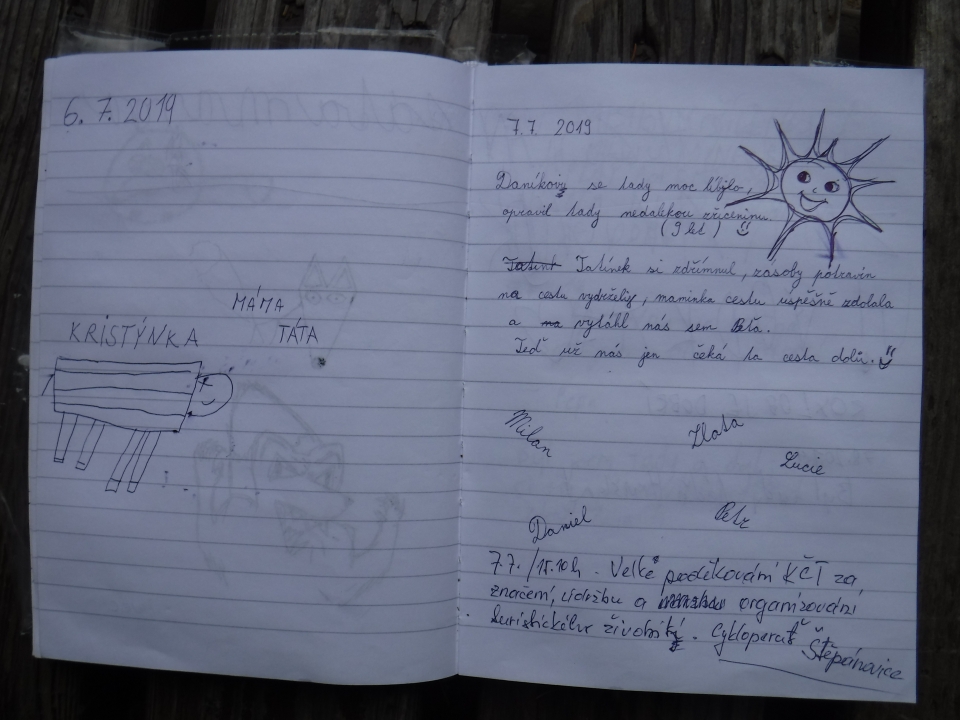 6. 7. 2019
MÁMA
KRISTÝNKA TÁTA
7.7 2019
Daníkovi se tady moc líbilo,
opravil tady nedalekou zříceninu.
(9 let)
Tatínek si zdřímnul, zásoby potravin
na cestu vydržely, maminka cestu úspěšně zdolala
a vytáhl nás sem Péťa.
Teď už nás jen čeká ta cesta dolů.
Milan
Zlata
Lucie
Daniel
Petr
7.7. /15.10 h. Velké poděkování KČT za
značení, údržbu a organizování
turistického
Štěpánovice